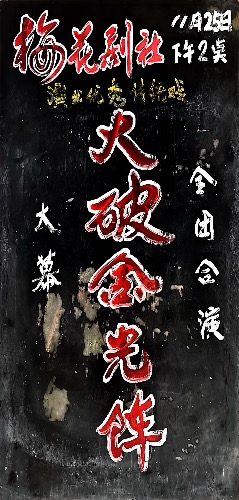 梅花剧社
11月25日
下午2点
演出优秀传统戏
火破金光阵
全团合演
大幕